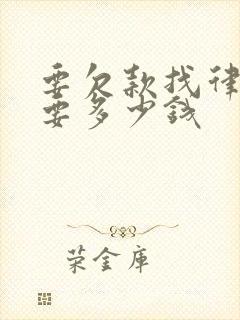 要欠款找律
要多少钱
荣金库